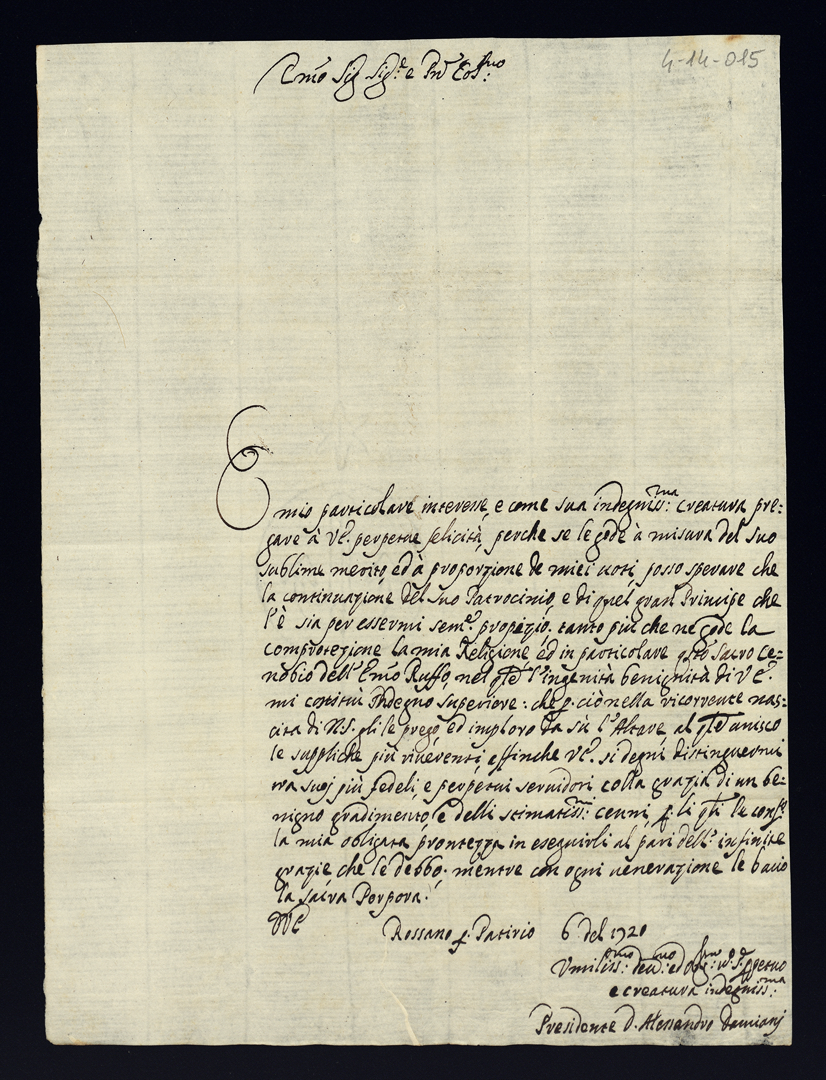 4-14-015
Em̃o Sig Sig.r e Pñ Col.mo:
E mio particolare interesse, e come sua indegniss:ma creatura pre-
gare à V.E. perpetue felicità, perche se le gode à misura del suo
sublime merito, ed à proporzione de miei uoti, posso sperare che
la continuazione del suo Patrocinio, e di quel gran Principe che
l'è sia per essermi sem.e propizio. tanto più che ne gode la
comprotezione la mia Religione, ed in particolare q̃sto sacro Ce-
nobio dell'Em̃o Ruffo, nel q̃le l'ingenità benignità di V.E.
mi constituì Indegno superiore: che p. ciò nella ricorrente nas-
cita di N.S. gli le prego, ed imploro da sù l'Altare, al q̃le unisco
le suppliche più riuerenti, affinche V.E. si degni distinguermi
tra suoj più fedeli, e perpetui seruidori colla grazia di un be-
nigno gradimento, e delli stimatiss:mi cenni, p. li q̃li le cons.o
la mia obligata prontezza in eseguirli al pari dell' infinite
grazie che le debbo. mentre con ogni uenerazione le bacio
la sacra Porpora.
DVE
Rossano p. Patirio 6 del 1720
Vmiliss:mo deu:mo ed obl:mo
e creatura indegniss:ma
Presidente D. Alessandro Damianj